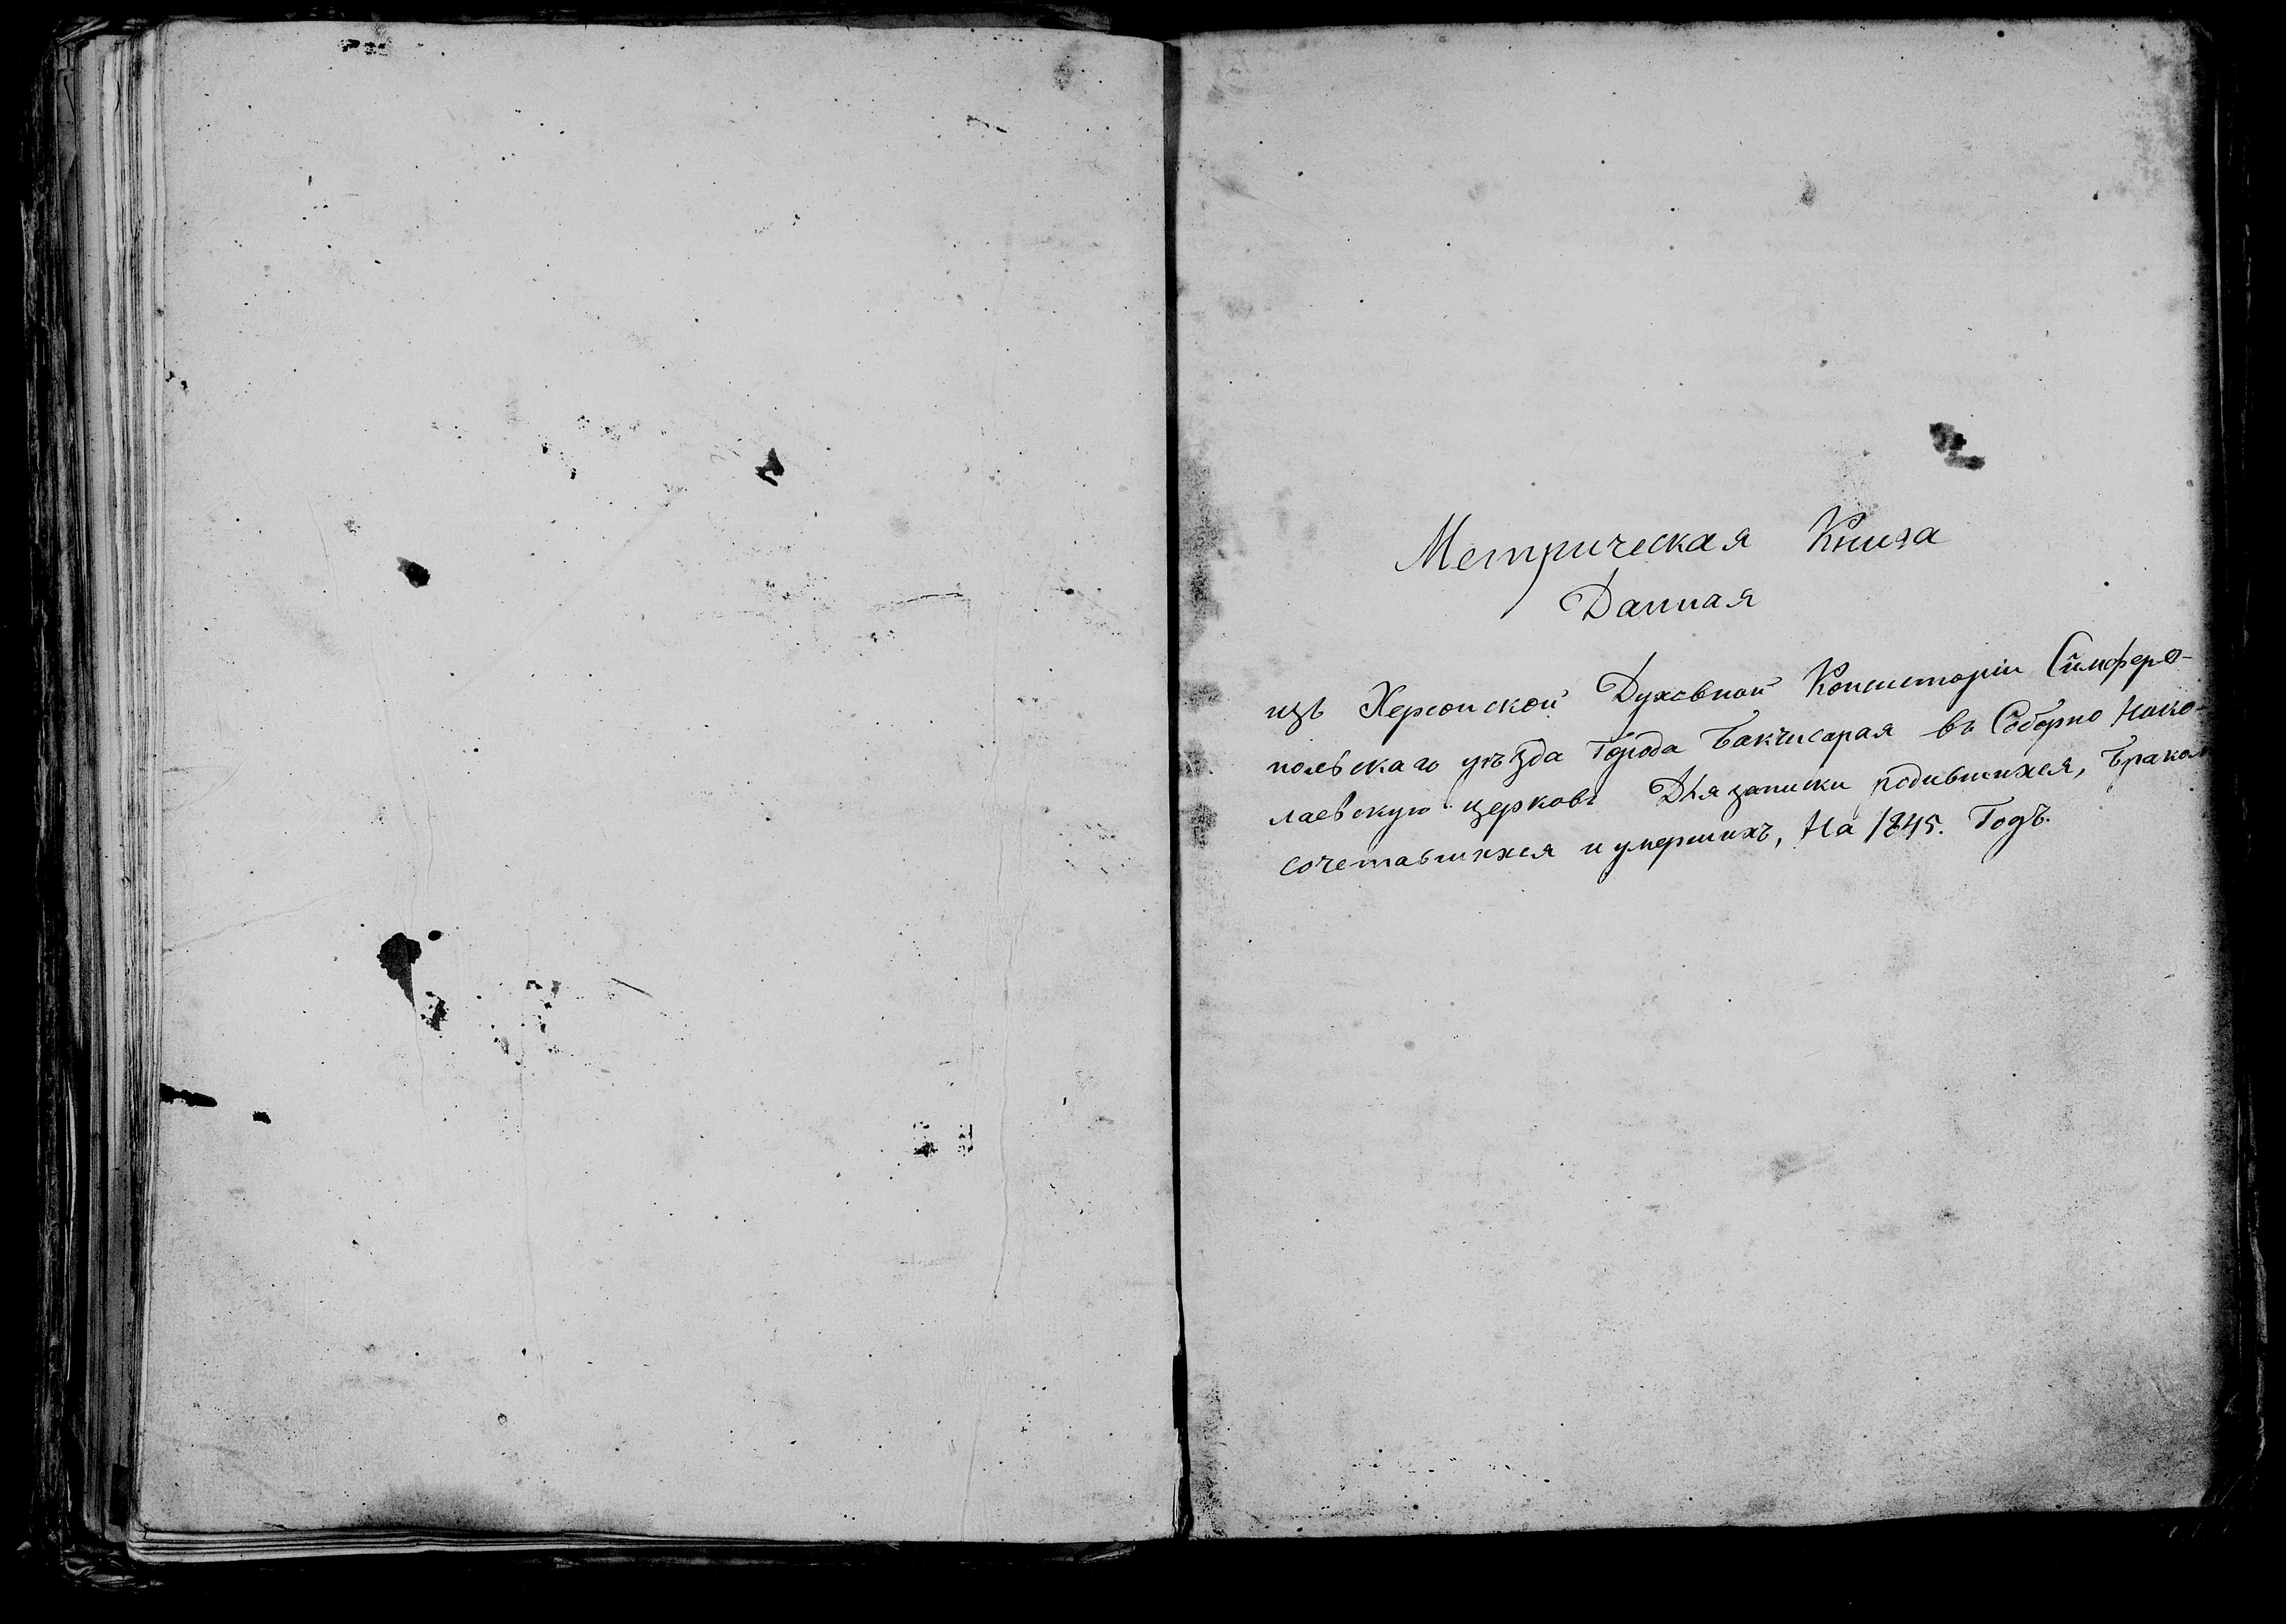 Метрическая Книга
Данная
изъ Херсонской Духовной Консисторіи Симферо-
польскаго уѣзда Города Бакчисарая въ Соборно Нико-
лаевскую церковь Для записки родившихся, браком
сочетавшихся и умершихъ, На 1845. Годъ.